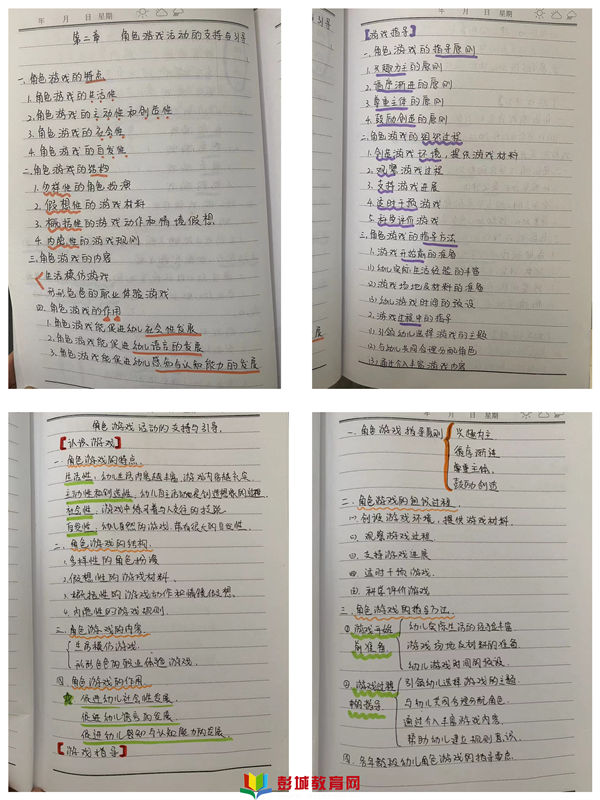 年 月 日 星期
第二章 角色游戏活动的支持与引导
一.角色游戏的特点
1.角色游戏的生活性
2.角色游戏的主动性和创造性
3.角色游戏的社会性
4.角色游戏的自发性
二.角色游戏的结构
1.多样性的角色扮演
2.假想性的游戏材料
3.概括性的游戏动作和情境假想.
4.内隐性的游戏规则
三.角色游戏的内容
生活模仿游戏
形形色色的职业体验游戏
四.角色游戏的作用
1.角色游戏能促进幼儿社会性发展
2.角色游戏能促进幼儿语言的发展
3.角色游戏能促进幼儿感知与认知能力的发展
年 月 日 星期
【游戏指导】
一.角色游戏的指导原则
1.兴趣为主的原则
2.循序渐进的原则
3.尊重主体的原则
4.鼓励创造的原则
二.角色游戏的组织过程
1.创设游戏环境，提供游戏材料
2.观察游戏过程
3.支持游戏进展
4.适时干预游戏
5.科学评价游戏
三.角色游戏的指导方法
1.游戏开始前的准备
(1)幼儿实际生活经验的丰富
(2)游戏场地及材料的准备
(3)幼儿游戏时间的预设
2.游戏过程中的指导
(1)引领幼儿选择游戏的主题
(2)与幼儿共同合理分配角色
(3)通过介入丰富游戏内容
角色游戏活动的支持与引导.
【认识游戏】
一.角色游戏的特点.
生活性:幼儿生活内容越丰富,游戏内容越充实.
主动性和创造性,
社会性,
自发性,
二.角色游戏的结构.
1.多样性的角色扮演
2.假想性的游戏材料.
3.概括性的游戏动作和情境假想.
4.内隐性的游戏规则.
三.角色游戏的内容.
生活模仿游戏.
形形色色的职业体验游戏.
四.角色游戏的作用.
促进幼儿社会性发展.
促进幼儿语言的发展.
促进幼儿感知与认知能力的发展.
【游戏指导】
年 月 日 星期
一.角色游戏指导原则
兴趣为主
循序渐进
尊重主体.
鼓励创造
二.角色游戏的组织过程.
(一)创设游戏环境,提供游戏材料.
(二)观察游戏过程.
(三)支持游戏进展
(四)适时干预游戏.
(四)科学评价游戏.
三.角色游戏的指导方法.
①游戏开始前准备
幼儿实际生活的经验丰富
游戏场地及材料的准备.
幼儿游戏时间的预设.
②游戏过程中的指导
引领幼儿选择游戏的主题.
与幼儿共同合理分配角色.
通过介入丰富游戏内容.
帮助幼儿建立规则意识.
四.各年龄段幼儿角色游戏的指导要点.
彭城教育网